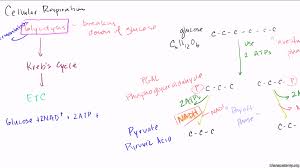 Cellular Respiration
Glycolysis - breaking
down of glucose
glucose
C6H12O6
C-C-C-C-C-C
use
2 ATPs
Kreb's Cycle
ETC
PGAL
Phosphoglyceraldehyde
C-C-C-P
2ATPs
NADH
Payoff
Phase
Glucose + 2NAD+ + 2ATP +
Pyruvate
Pyruvic Acid
C-C-C
C-C-C